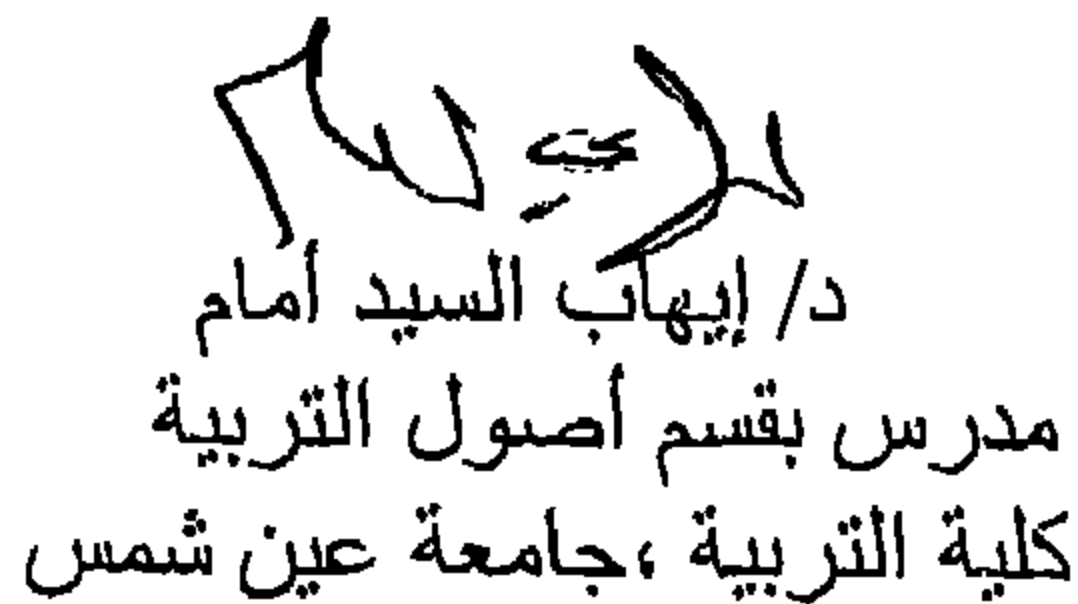 د/ إيهاب السيد أمام
مدرس بقسم أصول التربية
كلية التربية ،جامعة عين شمس